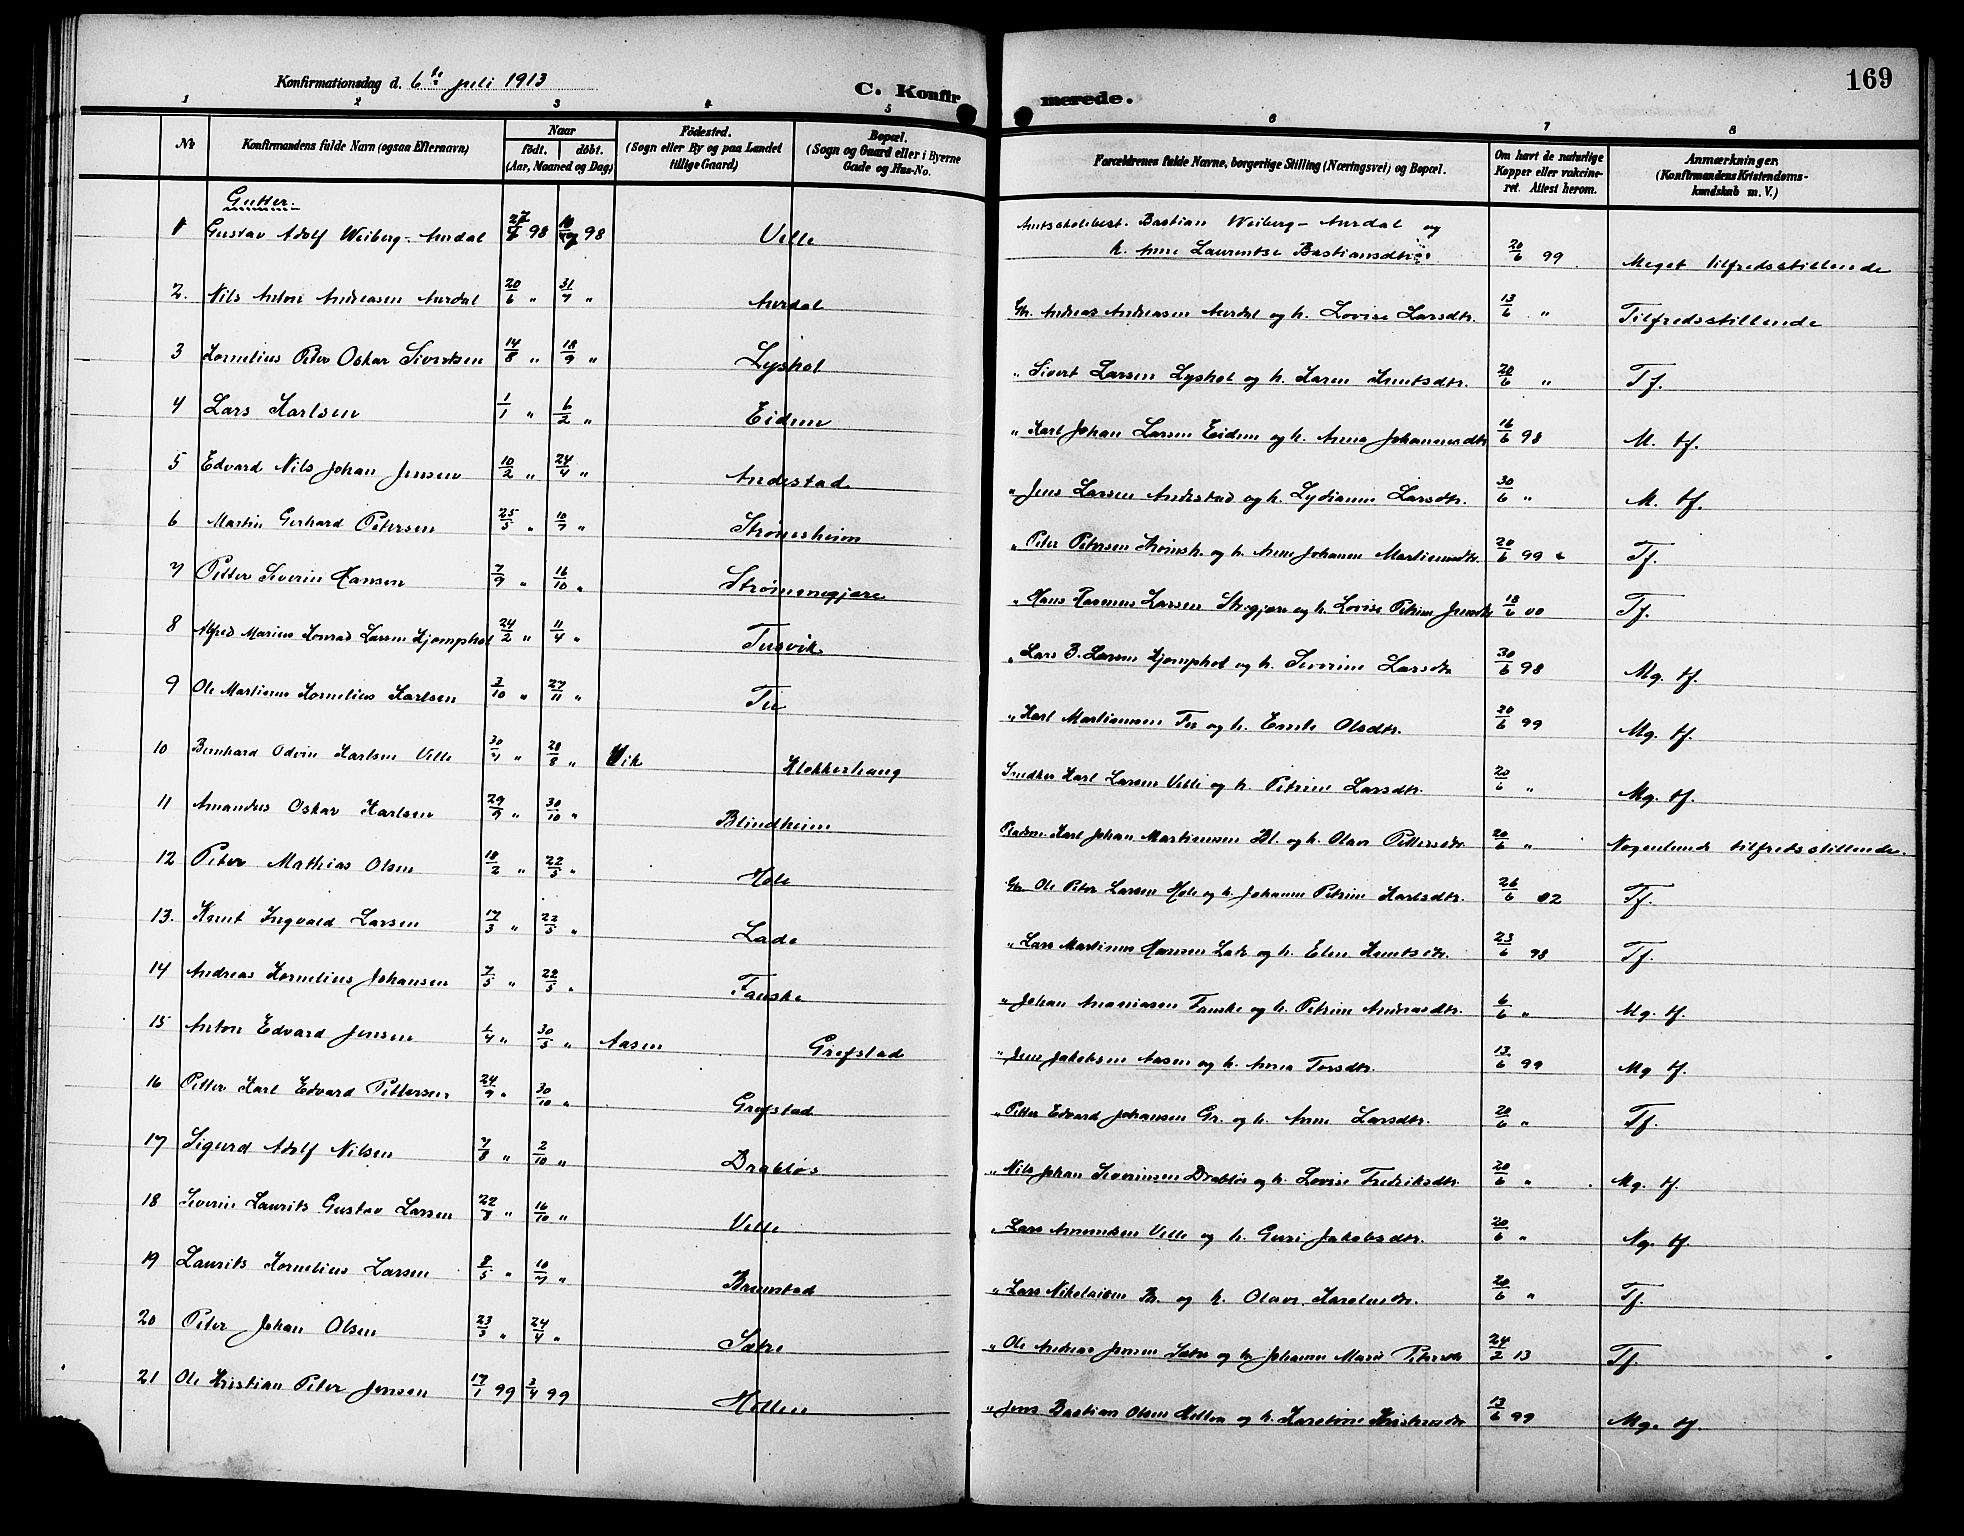 Konfirmationsdag d. 6te juli 1913
C. Konfir merede. 169
1 2 3 4 5 6 7 8
No Konfirmandens fulde Navn (ogsaa Efternavn) Naar født. døbt. (Aar, Maaned og Dag) Födested. (Sogn eller By og paa Landet tillige Gaard) Bopæl. (Sogn og Gaard eller i Byerne Gade og Hus-No. Forældrenes fulde Navne, borgerlige Stilling (Næringsvei) og Bopæl. Om havt de naturlige Kopper eller vakcineret. Attest herom. Anmærkninger. (Konfirmandens Kristendomskundskab m. V.)
Gutter.
1 Gustav Adolf Weiberg-Aurdal 98 98 Velle Amtsskolebest. Bastian Weiberg-Aurdal og
h. Anne Laurentse Bastiansdtr. 20/6 99 Meget tilfredsstillende
2. Nils Anton Andreasen Aurdal 20/6 " 31/7 " Aurdal Gbr. Andreas Andreasen Aurdal og h. Lovise Larsdtr. 13/6 " Tilfredsstillende
3 Kornelius Peder Oskar Sivertsen 14/8 " 18/9 " Lyshol " Sivert Larsen Lyshol og h. Karen Knutsdtr. 20/6 " Tf.
4 Lars Karlsen 1/1 " 6/2 " Eidem " Karl Johan Larsen Eidem og h. Anna Johannesdtr 16/6 98 M. tf.
5 Edvard Nils Johan Jensen 10/2 " 24/4 " Andestad " Jens Larsen Andestad og h. Lydianna Larsdtr. 30/6 " M. tf.
6 Martin Gerhard Petersen 25/5 " 10/7 " Strømesheim " Peter Petersen Strømsh. og h. Anne Johanne Martinusdtr. 20/6 99 Tf.
7 Petter Severin Hansen 7/9 " 16/10 " Strømmegjære " Hans Rasmus Larsen Str.gjære og h. Lovise Petrine Jensdtr 18/6 00 Tf.
8 Alfred Marius Konrad Larsen Kjemphol 24/2 " 11/4 " Tusvik " Lars B. Larsen Kjemphol og h. Severine Larsdtr 30/6 98 Mg. tf.
9 Ole Martinus Kornelius Karlsen 3/10 " 27/11 " Tu " Karl Martinussen Tu og h. Emile Olsdtr. 20/6 99 Mg. tf.
10 Bernhard Odvin Karlsen Velle 30/7 " 28/8 " Vik Klokkerhaug Snedker Karl Larsen Velle og h. Petrine Larsdtr. 20/6 " Mg. tf.
11 Amandus Oskar Karlsen 29/9 " 30/10 " Blindheim Karl Johan Martinussen Bl. og h. Olave Pettersdtr. 20/6 " Nogenlunde tilfredsstillende.
12 Peter Mathias Olsen 18/2 " 22/5 " Hole Gbr. Ole Peter Larsen Hole og h. Johanne Petrine Karlsdtr. 26/6 02 Tf.
13. Knut Ingvald Larsen 17/3 " 22/5 " Lade " Lars Martinus Hansen Lade og h. Elen Knutsdtr. 23/6 98 Tf.
14 Andreas Kornelius Johansen 7/5 " 22/5 " Fauske " Johan Ananiasen Fauske og h. Petrine Andreasdtr. 6/6 " Mg. tf.
15 Anton Edvard Jensen 1/4 " 30/5 " Aasen Grefstad " Jens Jakobsen Aasen og h. Anna Torsdtr. 13/6 99 Mg tf.
16 Petter Karl Edvard Pettersen 24/9 " 30/10 " Grefstad " Petter Edvard Johansen Gr. og h. Anne Larsdtr. 20/6 " Tf.
17 Sigurd Adolf Nilsen 7/8 " 2/10 " Drabløs " Nils Johan Severinsen Drabløs og h. Lovise Fredriksdtr. 20/6 " Mg. tf.
18 Severin Laurits Gustav Larsen 22/8 " 16/10 " Velle " Lars Amundsen Velle og h. Guri Jakobsdtr. 20/6 " Ng. tf.
19 Laurits Kornelius Larsen 8/5 " 10/7 " Brunstad " Lars Nikolaisen Br. og h. Olave Karolusdtr. 20/6 " Tf.
20 Peter Johan Olsen 23/3 " 24/4 " Sætre " Ole Andreas Jensen Sætre og h. Johanne Marie Petersdtr 24/2 13 Tf.
21 Ole Kristian Peter Jensen 17/1 99 3/4 99 Hollen " Jens Bastian Olsen Hollen og h. Karoline 13/6 99 Mg. tf.